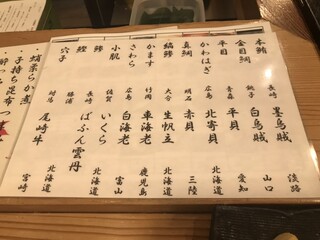 本鮪 長崎 墨烏賊 淡路
金目鯛 銚子 白烏賊 山口
平目 青森 平貝 愛知
かわはぎ 広島 北寄貝 北海道
真鯛 明石 赤貝 三陸
縞鯵 大分 生帆立 北海道
かます 竹岡 車海老 鹿児島
さわら 広島 白海老 富山
小肌 佐賀 いくら 北海道
鯵 長崎 ばふん雲丹 北海道
鰹 勝浦 尾崎牛 宮崎
穴子 対馬
蛸柔らか煮
・子持ち昆布